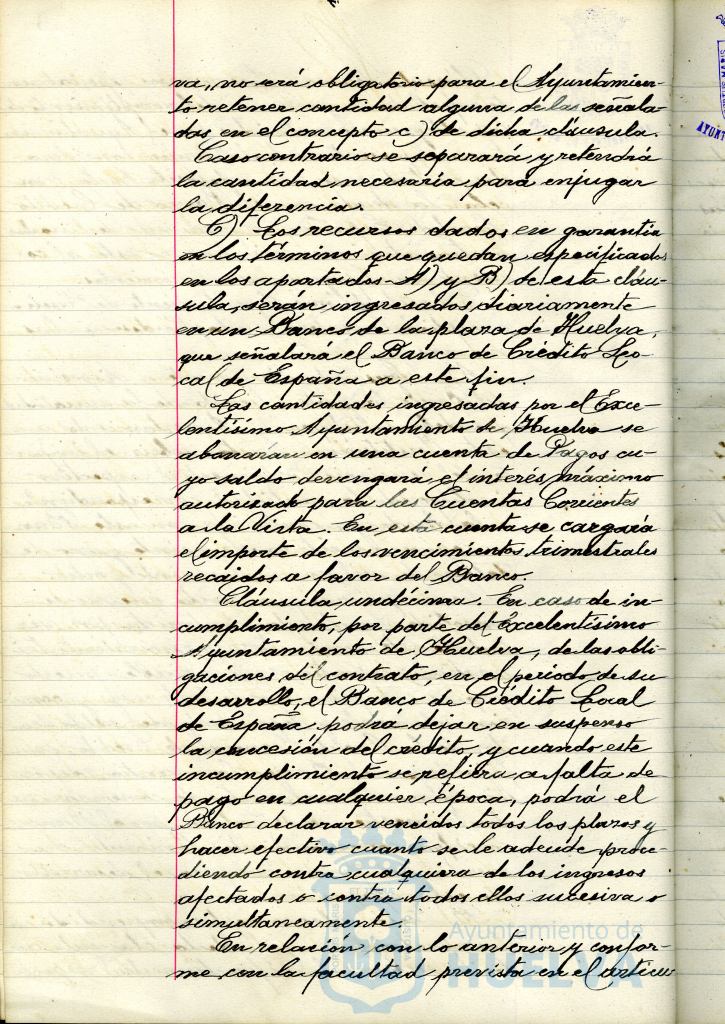 va, no será obligatorio para el Ayuntamien-
to retener cantidad alguna de las señala-
das en el concepto c) de dicha cláusula.
Caso contrario se separará y retendrá
la cantidad necesaria para enjugar
la diferencia.
C) Los recursos dados en garantia
en los términos que quedan especificados
en los apartados A) y B) de esta cláu-
sula, serán ingresados diariamente
en un Banco de la plaza de Huelva,
que señalará el Banco de Crédito Lo-
cal de España a este fin.
Las cantidades ingresadas por el Exce-
lentísimo Ayuntamiento de Huelva se
abonarán en una cuenta de Pagos cu-
yo saldo devengará el interés máximo
autorizado para las Cuentas Corrientes
a la Vista. En esta cuenta se cargará
el importe de los vencimientos trimestrales
recaidos a favor del Banco.
Cláusula undécima. En caso de in-
cumplimiento, por parte del Excelentísimo
Ayuntamiento de Huelva, de las obli-
gaciones del contrato, en el periodo de su
desarrollo, el Banco de Crédito Local
de España podrá dejar en suspenso
la concesión del crédito, y cuando este
incumplimiento se refiera a falta de
pago en cualquier época, podrá el
Banco declarar vencidos todos los plazos y
hacer efectivo cuanto se le adeude proce-
diendo contra cualquiera de los ingresos
afectados o contra todos ellos sucesiva o
simultaneamente.
En relación con lo anterior y confor-
me con la facultad prevista en el artícu
Ayuntamiento de
HUELVA